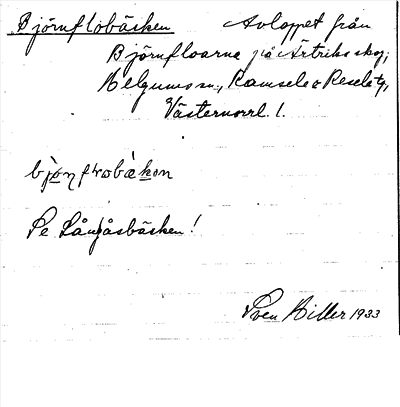 Björnflobäcken Avloppet från
Björnfloarna på Ärtriks skog,
Helgums sn, Ramsele o Resele tg,
Västernorrl. l.
Se Långåsbäcken!
Sven Hiller 1933